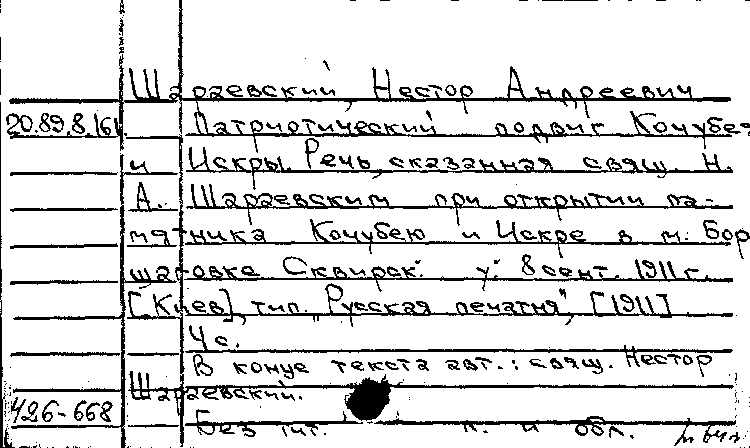 Шараевский, Нестор Андреевич
20.89.8.161. Патриотический подвиг Кочубея
и Искры. Речь, сказанная свящ. Н.
А. Шараевским при открытии па-
мятника Кочубею и Искре в м. Бор
щаговке Сквирск. у. 8 сент. 1911 г.
[Киев], тип. "Русская печатня", [1911]
4 с.
В конце текста авт.: свящ. Нестор
Шараевский.
426-668
Без тит. л. и обл.